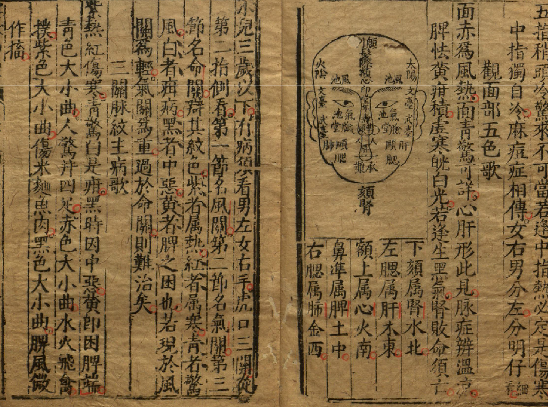 五指稍頭冷驚來不可當若逢中指熱必定是傷寒
中指獨自冷麻痘症相傳女右男分左分明仔細
觀面部五色歌
面赤為風熱面青驚可詳心肝形此見脉症辨溫凉
脾怯黃疳積虛寒㿠白光若逢生黑氣腎敗命須亡
太陽
文臺
武臺
風池
氣池
頦腎
下頦属腎水北
左腮属肝木東
額上属心火南
鼻準属脾土中
右腮属肺金西
小兒三歲以下有病須看男左女右手虎口三關從
第二指側看第一節名風關第二節名氣關第三
節名命關辨其紋色紫者属熱紅者属寒青者驚
風白者疳病黑者中惡黃者脾之困也若現於風
關為輕氣關為重過於命關則難治矣
三關脉紋主病歌
紫熱紅傷寒青驚白是疳黑時因中惡黃即困脾端
青色大小曲人驚并四足赤色大小曲水火飛禽
撲紫色大小曲傷米麵魚肉黑色大小曲脾風微
作搐